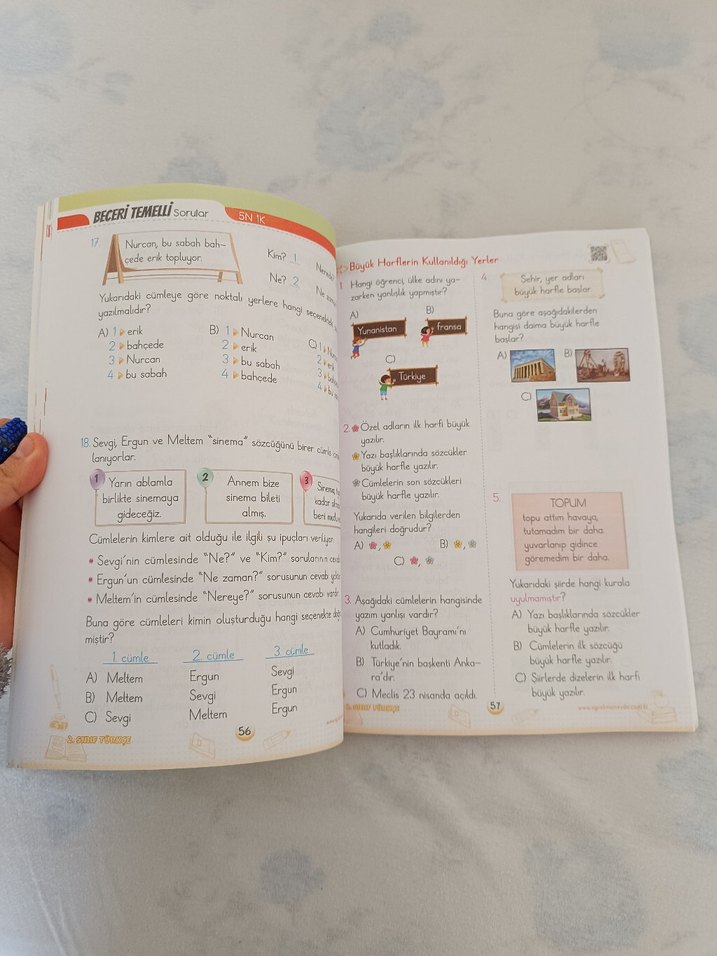 BECERİ TEMELLİ Sorular
5N 1K
17.
Nurcan, bu sabah bah-
çede erik topluyor.
Kim? 1
Ne? 2
Yukarıdaki cümleye göre noktalı yerlere hangi
yazılmalıdır?
A) 1 erik
2 bahçede
3 Nurcan
4 bu sabah
B) 1 Nurcan
2 erik
3 bu sabah
4 bahçede
C) 1
2
3
4
18. Sevgi, Ergun ve Meltem "sinema" sözcüğünü birer
lanıyorlar.
1
Yarın ablamla
birlikte sinemaya
gideceğiz.
2
Annem bize
sinema bileti
almış.
3
kadar
beni
Cümlelerin kimlere ait olduğu ile ilgili şu ipuçları veriliyor.
Sevgi'nin cümlesinde "Ne?" ve "Kim?" sorularının
Ergun'un cümlesinde "Ne zaman?" sorusunun cevabı
Meltem'in cümlesinde "Nereye?" sorusunun cevabı vardır.
Buna göre cümleleri kimin oluşturduğu hangi seçenekte
miştir?
1. cümle 2. cümle 3. cümle
A) Meltem Ergun Sevgi
B) Meltem Sevgi Ergun
C) Sevgi Meltem Ergun
2. SINIF TÜRKÇE
56
Büyük Harflerin Kullanıldığı Yerler
1. Hangi öğrenci, ülke adını ya-
zarken yanlışlık yapmıştır?
A)
Yunanistan
B)
fransa
C)
Türkiye
2. Özel adların ilk harfi büyük
yazılır.
Yazı başlıklarında sözcükler
büyük harfle yazılır.
Cümlelerin son sözcükleri
büyük harfle yazılır.
Yukarıda verilen bilgilerden
hangileri doğrudur?
A) , B) ,
C) ,
3. Aşağıdaki cümlelerin hangisinde
yazım yanlışı vardır?
A) Cumhuriyet Bayramı'nı
kutladık.
B) Türkiye'nin başkenti Anka-
ra'dır.
C) Meclis 23 nisanda açıldı.
4.
Şehir, yer adları
büyük harfle başlar.
Buna göre aşağıdakilerden
hangisi daima büyük harfle
başlar?
A) B)
C)
5.
TOPUM
topu attım havaya,
tutamadım bir daha.
yuvarlanıp gidince
göremedim bir daha.
Yukarıdaki şiirde hangi kurala
uyulmamıştır?
A) Yazı başlıklarında sözcükler
büyük harfle yazılır.
B) Cümlelerin ilk sözcüğü
büyük harfle yazılır.
C) Şiirlerde dizelerin ilk harfi
büyük yazılır.
2. SINIF TÜRKÇE
57